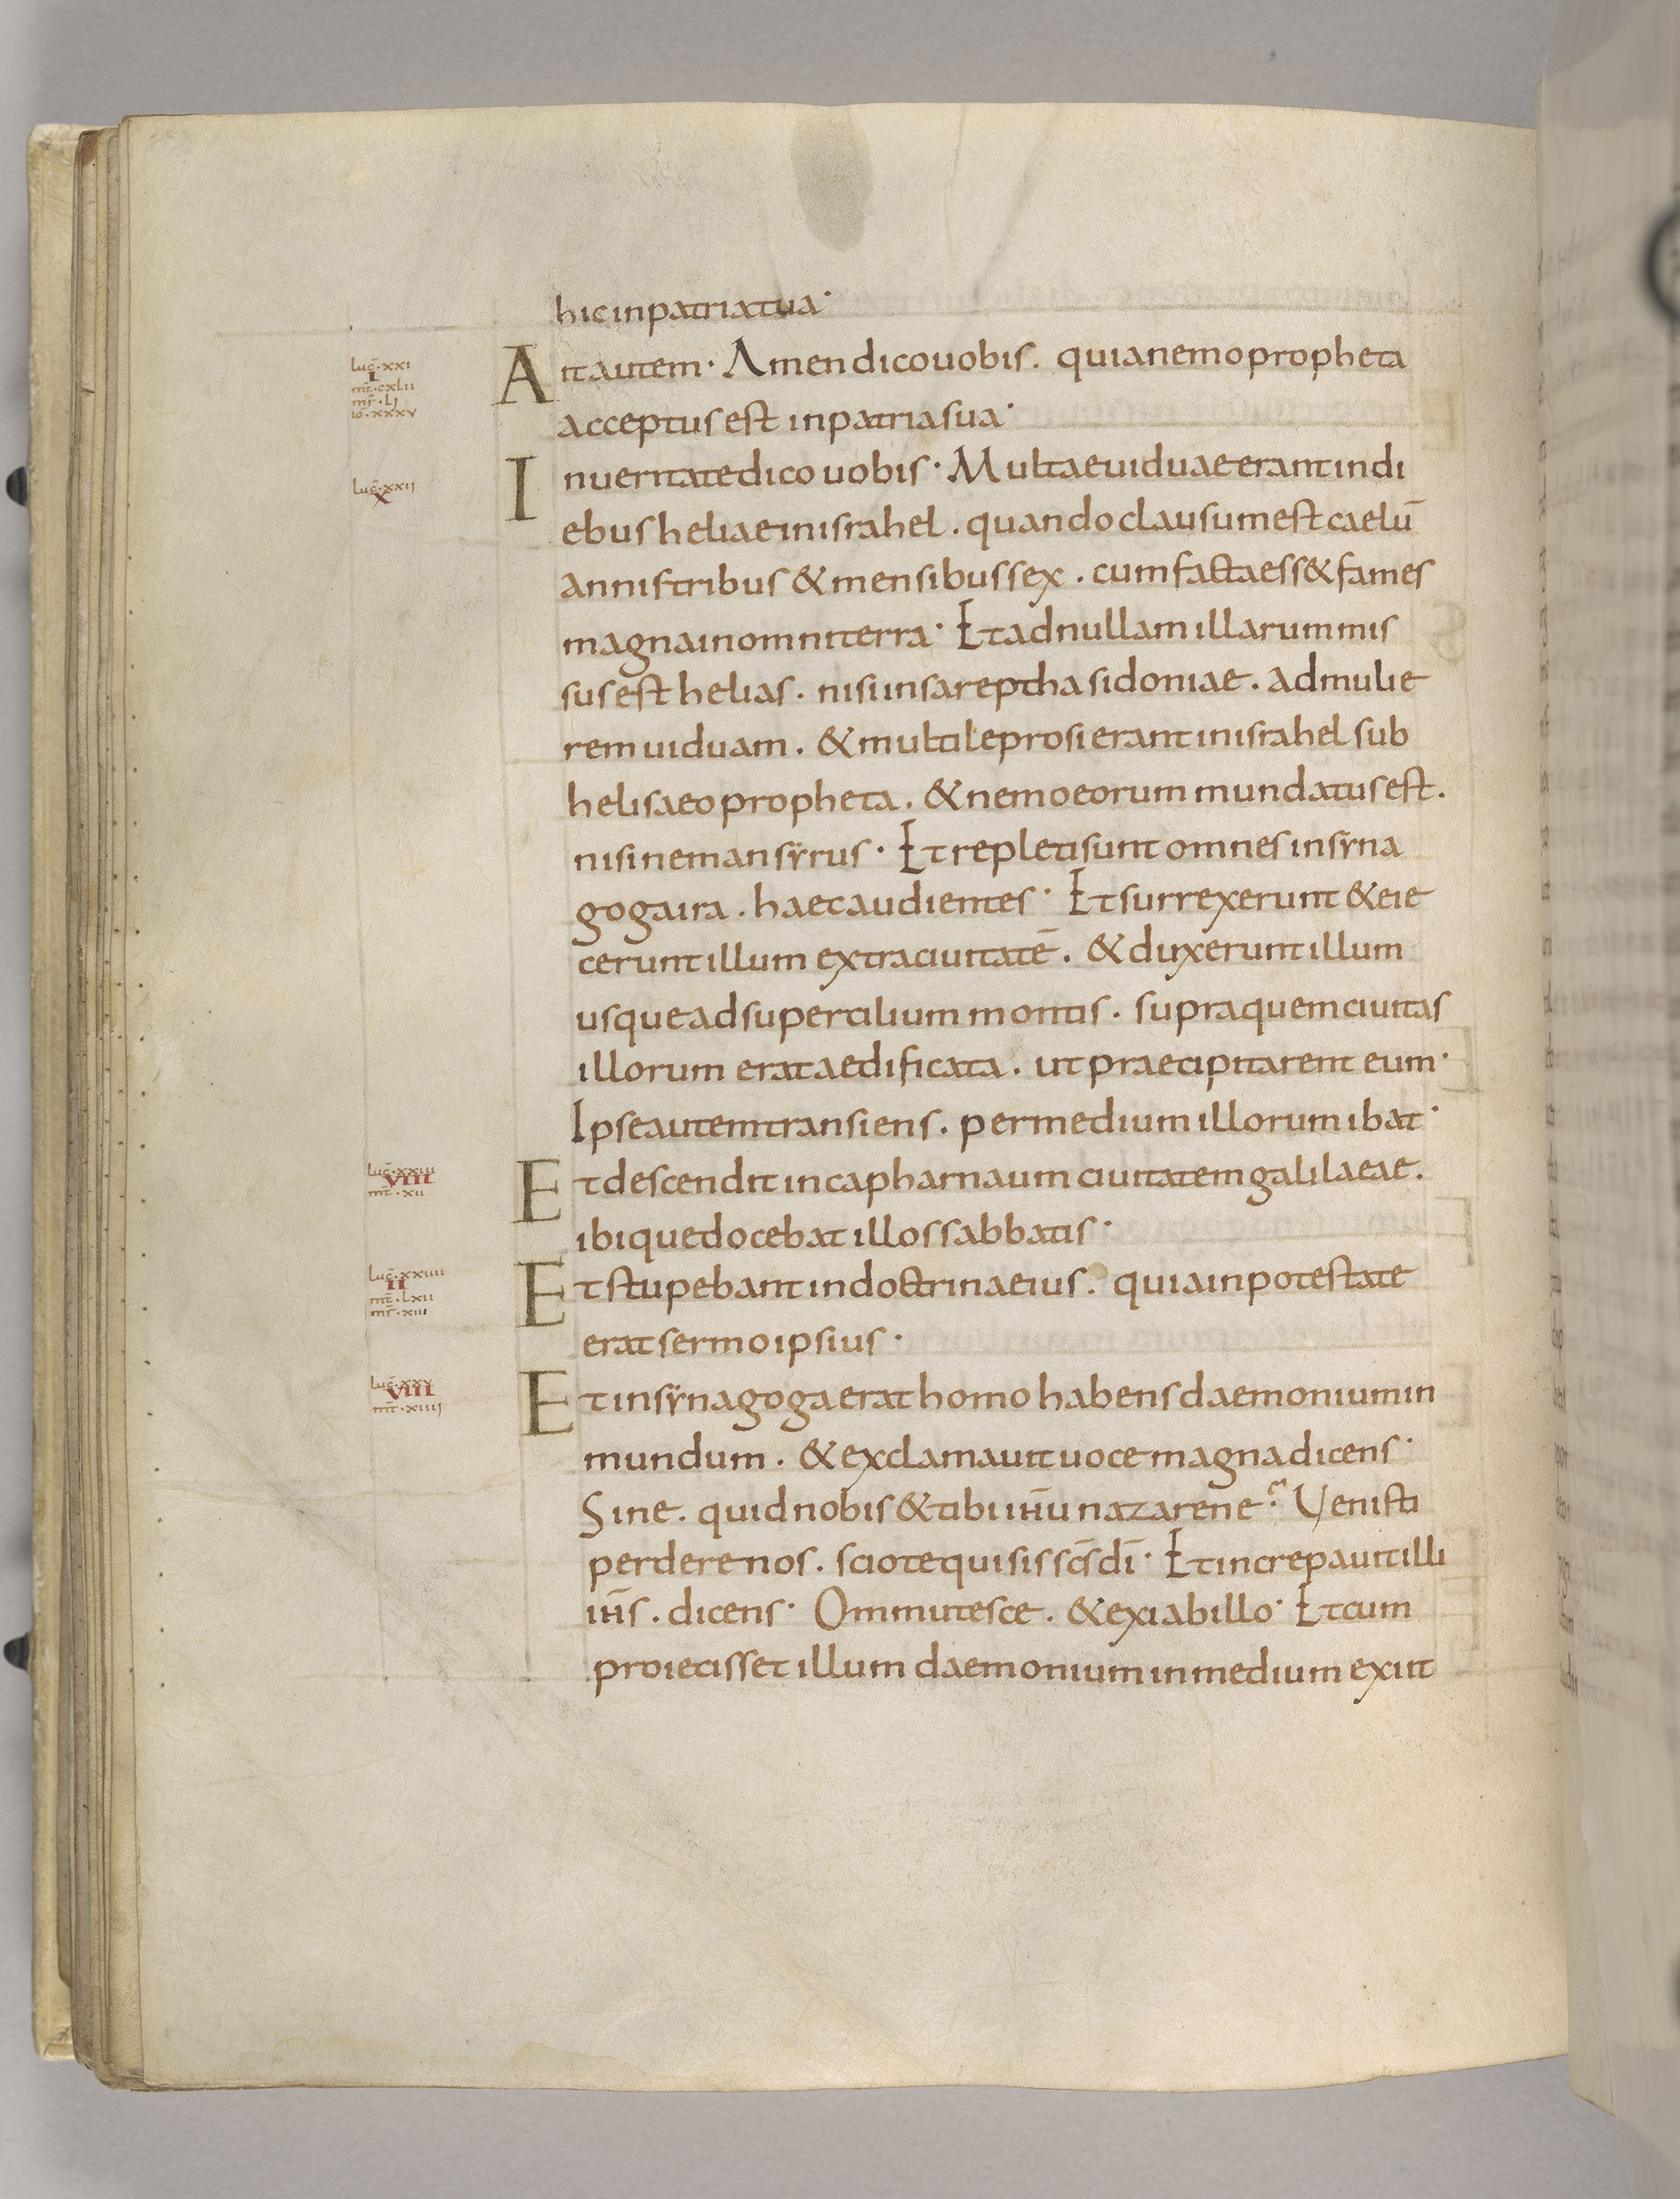 hic in patria tua·
luc̄·xxi
I
mt̄·cxlii
mr̄·lj
io·xxxv
Ait autem· Amen dico uobis. quia nemo propheta
acceptus est in patria sua·
luc̄·xxii
X
In ueritate dico uobis· Multae uiduae erant in di
ebus heliae in israhel. quando clausum est caelū
annis tribus & mensibus sex. cum facta ess& fames
magna in omni terra· Et ad nullam illarum mis
sus est helias. nisi in sareptha sidoniae. ad mulie
rem uiduam. & multi leprosi erant in israhel sub
helisaeo propheta. & nemo eorum mundatus est.
nisi neman sẏrus· Et repleti sunt omnes in sẏna
goga ira. haec audientes· Et surrexerunt & eie
cerunt illum extra ciuitatē. & duxerunt illum
usque ad supercilium montis. supra quem ciuitas
illorum erat aedificata. ut praecipitarent eum·
Ipse autem transiens. per medium illorum ibat·
luc̄·xxiii
VIII
mt̄·xii
Et descendit in capharnaum ciuitatem galilaeae.
ibique docebat illos sabbatis·
luc̄·xxiiii
II
mt̄·lxii
mr̄·xiii
Et stupebant in doctrina eius. quia in potestate
erat sermo ipsius·
luc̄·xxv
VIII
mt̄·xiiij
Et in sẏnagoga erat homo habens daemonium in
mundum. & exclamauit uoce magna dicens·
Sine. quid nobis & tibi ih̄u nazarene? Venisti
perdere nos. scio te qui sis sc̄s dī· Et increpauit illi
ih̄s. dicens· Ommutesce. & exi ab illo· Et cum
proiecisset illum daemonium in medium exiit